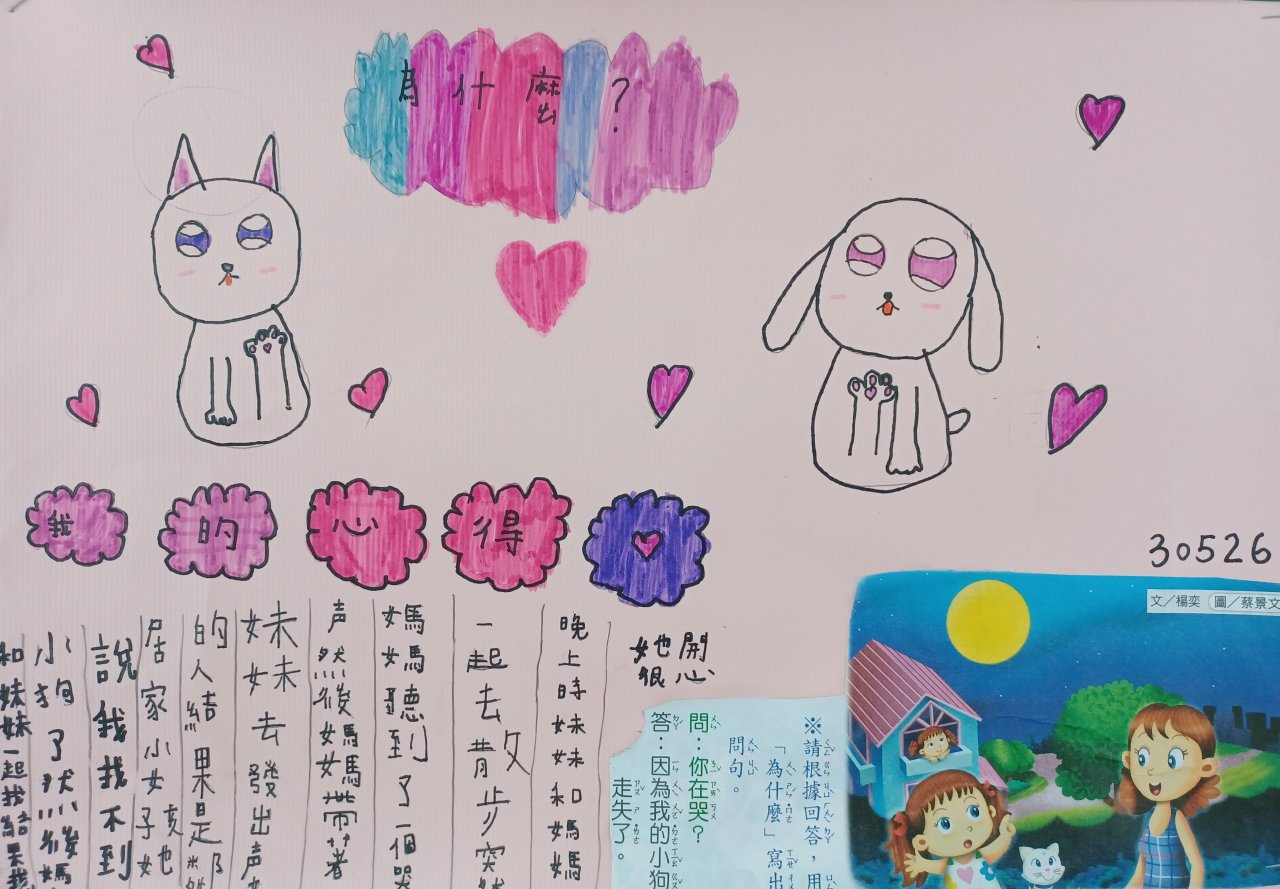 為什麼?
我的心得
30526
文/楊奕 圖/蔡景文
※請根據回答,用
「為什麼」寫出
問句。
問:你在哭?
答:因為我的小狗
走失了。
她很
開心
晚上時妹妹和媽媽
一起去散步突然
媽媽聽到了一個哭
声然後媽媽帶著
妹妹去發出声
的人結果是鄰
居家小女孩她
說我找不到
小狗了然後媽
和妹妹一起找結果